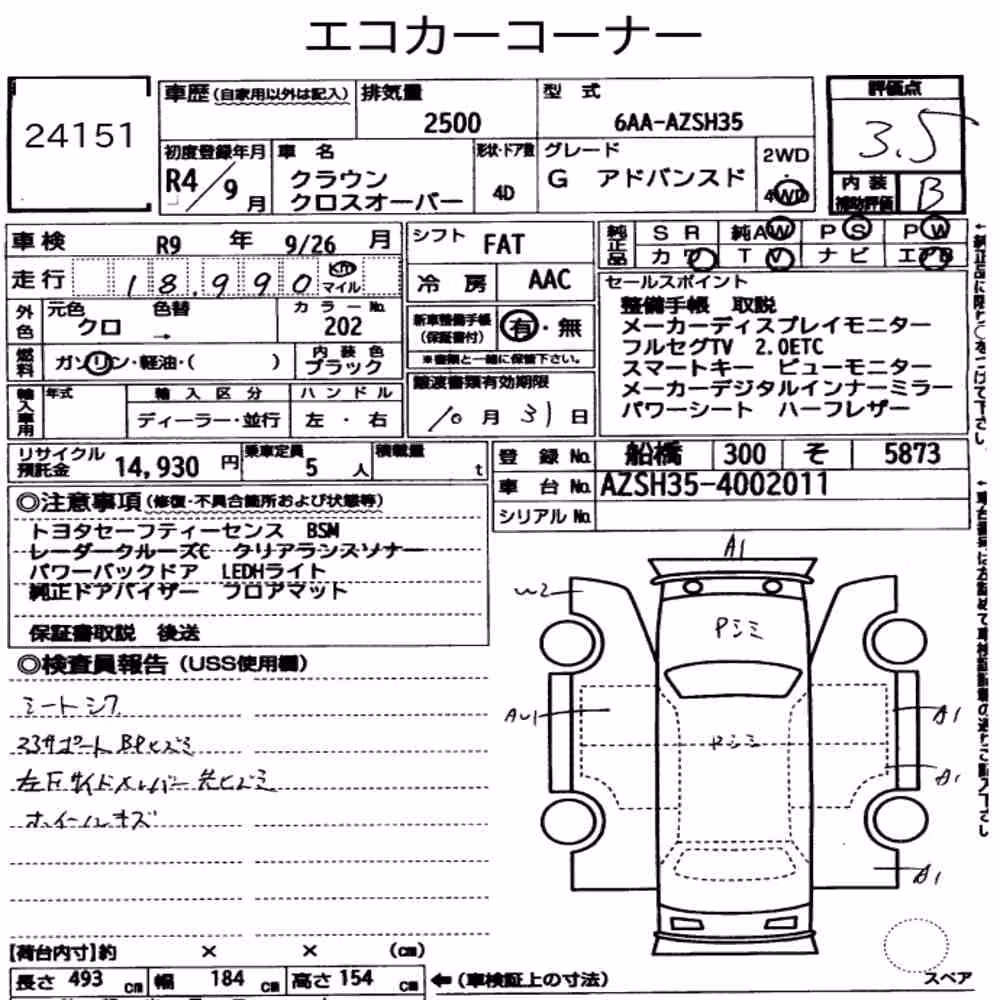 エコカーコーナー
24151
車歴 (自家用以外は記入)
排気量
2500
型 式
6AA-AZSH35
評価点
3.5
初度登録年月
R4/9月
車 名
クラウン
クロスオーバー
形状・ドア数
4D
グレード
G アドバンスド
2WD
・
4WD
内 装
補助評価
B
車検 R9 年 9/26 月
シフト FAT
純正品
SR 純AW PS PW
カワ TV ナビ エアB
走行 18,990 Km マイル
冷 房 AAC
セールスポイント
整備手帳 取説
メーカーディスプレイモニター
フルセグTV 2.0ETC
スマートキー ビューモニター
メーカーデジタルインナーミラー
パワーシート ハーフレザー
外色
元色 色替
クロ →
カラーNo.
202
新車整備手帳
(保証書付)
有・無
※書類と一緒に保管下さい。
燃料
ガソリン・軽油・( )
内装色
ブラック
譲渡書類有効期限
10月31日
輸入車用
年式
輸入区分
ディーラー・並行
ハンドル
左・右
リサイクル
預託金
14,930円
乗車定員
5人
積載量
t
登録No. 船橋 300 そ 5873
車台No. AZSH35-4002011
シリアルNo.
◎注意事項(修復・不具合箇所および状態等)
トヨタセーフティーセンス BSM
レーダークルーズC クリアランスソナー
パワーバックドア LEDHライト
純正ドアバイザー フロアマット
保証書取説 後送
◎検査員報告 (USS使用欄)
シートシワ
コアサポート BPヒズミ
左F サイドメンバー 先ヒズミ
ホイールキズ
A1
W2
Pシミ
AU1
Pシミ
A1
A1
A1
【荷台内寸】約 × × (cm)
長さ 493 cm 幅 184 cm 高さ 154 cm
←(車検証上の寸法)
スペア